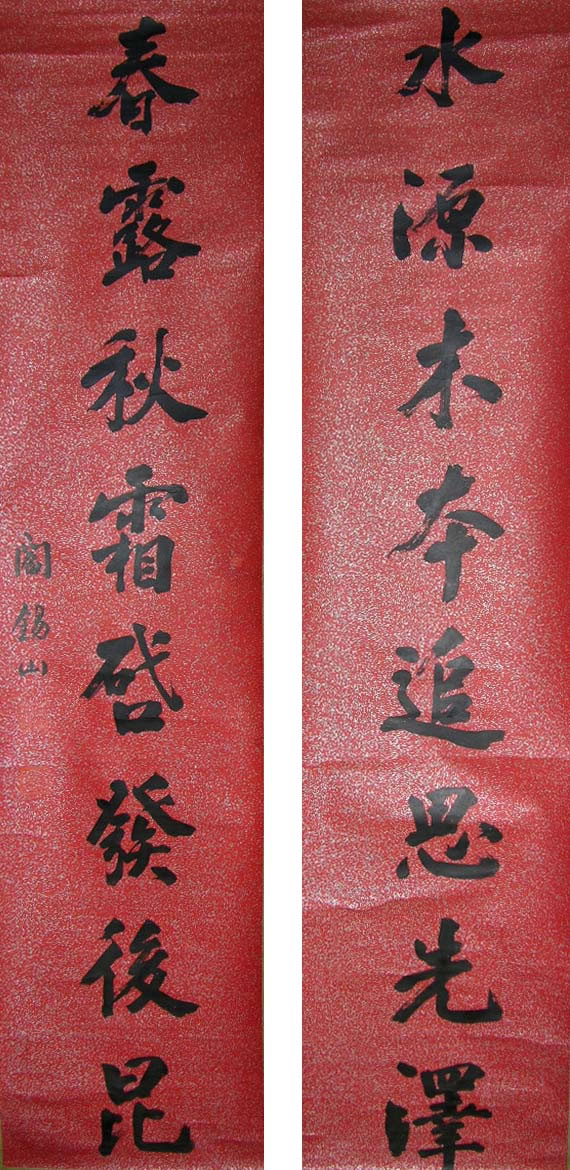 水源木本追思先澤
春露秋霜啟發後昆
閻錫山